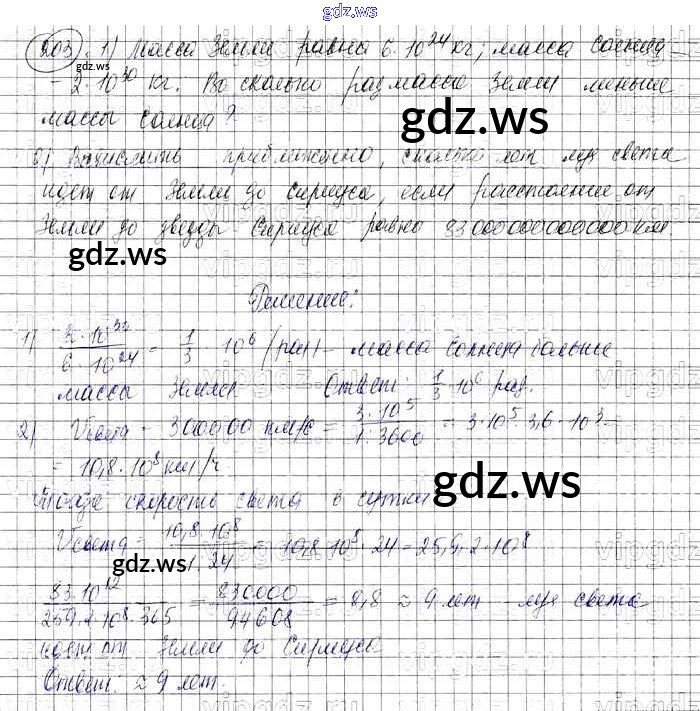 gdz.ws
203. 1) Масса Земли равна 6·10²⁴ кг; масса солнца
gdz.ws
– 2·10³⁰ кг. Во сколько раз масса Земли меньше
массы солнца?
gdz.ws
2) Вычислить приближенно, сколько лет луч света
идет от Земли до Сириуса, если расстояние от
Земли до звезды Сириуса равно 83000000000000 км
gdz.ws
Решение:
1) 2·10³⁰ / 6·10²⁴ = 1/3 · 10⁶ (раз) – масса Солнца больше
массы Земли Ответ: 1/3·10⁶ раз.
gdz.ws
2) Vсвета = 300000 км/с = 3·10⁵ / 1:3600 = 3·10⁵·3,6·10³ =
= 10,8·10⁸ км/ч
gdz.ws
Тогда скорость света в сутки
Vсвета = 10,8·10⁸ / 1:24 = 10,8·10⁸·24 = 259,2·10⁸
gdz.ws
83·10¹² / 259,2·10⁸·365 = 830000 / 94608 = 8,8 ≈ 9 лет луч света
идет от Земли до Сириуса
Ответ: ≈ 9 лет.